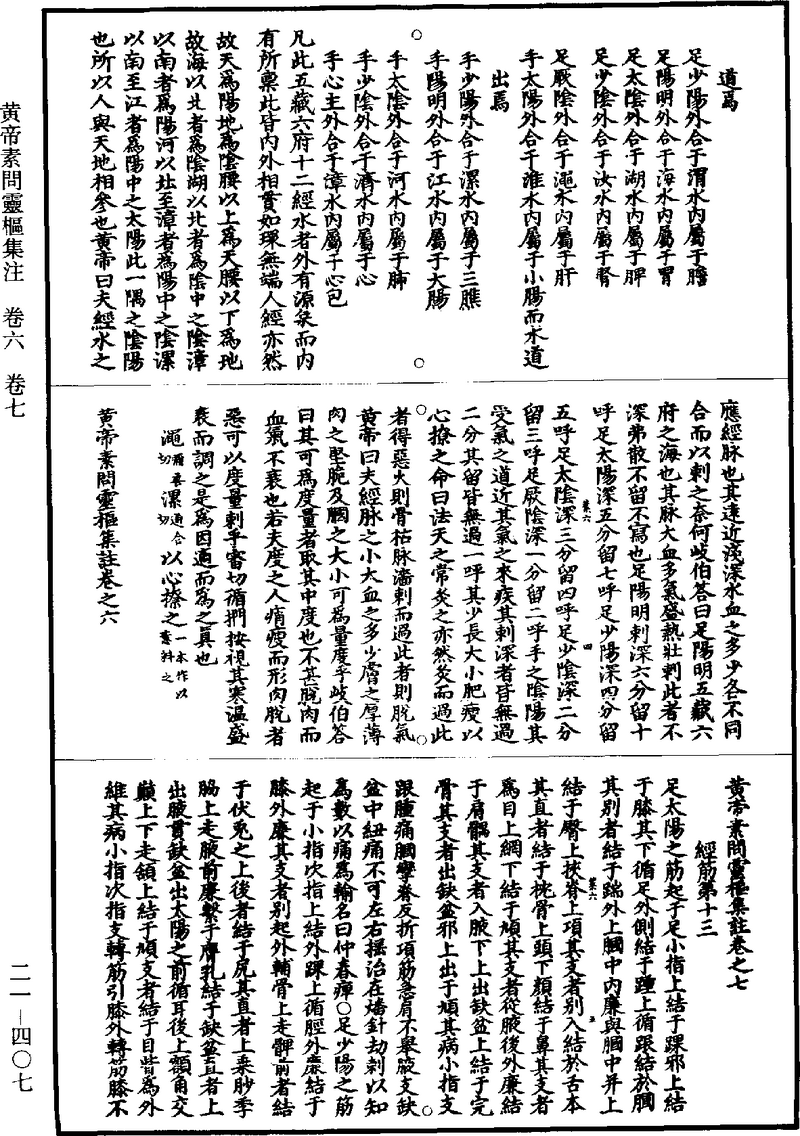 黄帝素問靈樞集注　卷六　卷七
二一—四〇七
道焉
足少陽外合于渭水內屬于膽
足陽明外合于海水內屬于胃
足太陰外合于湖水內屬于脾
足少陰外合于汝水內屬于腎
足厥陰外合于澠水內屬于肝
手太陽外合于淮水內屬于小腸而水道
出焉
手少陽外合于漯水內屬于三膲
手陽明外合于江水內屬于大腸
手太陰外合于河水內屬于肺
手少陰外合于濟水內屬于心
手心主外合于漳水內屬于心包
凡此五藏六府十二經水者外有源泉而內
有所禀此皆內外相貫如環無端人經亦然
故天爲陽地爲陰腰以上爲天腰以下爲地
故海以北者爲陰湖以北者爲陰中之陰漳
以南者爲陽河以北至漳者爲陽中之陰漯
以南至江者爲陽中之太陽此一隅之陰陽
也所以人與天地相參也黄帝曰夫經水之
應經脉也其遠近淺深水血之多少各不同
合而以刺之奈何歧伯答曰足陽明五藏六
府之海也其脉大血多氣盛熱壯刺此者不
深弗散不留不寫也足陽明刺深六分留十
呼足太陽深五分留七呼足少陽深四分留
五呼足太陰深三分留四呼足少陰深二分
留三呼足厥陰深一分留二呼手之陰陽其
受氣之道近其氣之來疾其刺深者皆無過
二分其留皆無過一呼其少長大小肥瘦以
心撩之命曰法天之常灸之亦然灸而過此
者得惡火則骨枯脉濇刺而過此者則脫氣
黄帝曰夫經脉之小大血之多少膚之厚薄
肉之堅脆及膕之大小可爲量度乎歧伯答
曰其可爲度量者取其中度也不甚脫肉而
血氣不衰也若夫度之人痟瘦而形肉脫者
惡可以度量刺乎審切循捫按視其寒温盛
衰而調之是爲因適而爲之眞也
澠 切 漯 通合切 以心撩之 一本作以意料之
黄帝素問靈樞集註卷之六
黄帝素問靈樞集註卷之七
經筋第十三
足太陽之筋起于足小指上結于踝邪上結
于膝其下循足外側結于踵上循跟結於膕
其別者結于踹外上膕中內廉與膕中并上
結于臀上挾脊上項其支者別入結於舌本
其直者結于枕骨上頭下顏結于鼻其支者
爲目上網下結于頄其支者從腋後外廉結
于肩髃其支者入腋下上出缺盆上結于完
骨其支者出缺盆邪上出于頄其病小指支
跟腫痛膕攣脊反折項筋急肩不舉腋支缺
盆中紐痛不可左右摇治在燔針劫刺以知
爲數以痛爲輸名曰仲春痺〇足少陽之筋
起于小指次指上結外踝上循脛外廉結于
膝外廉其支者別起外輔骨上走髀前者結
于伏兎之上後者結于尻其直者上乗䏚季
脇上走腋前廉繫于膺乳結于缺盆直者上
出腋貫缺盆出太陽之前循耳後上額角交
巔上下走頷上結于頄支者結于目眥爲外
維其病小指次指支轉筋引膝外轉筋膝不